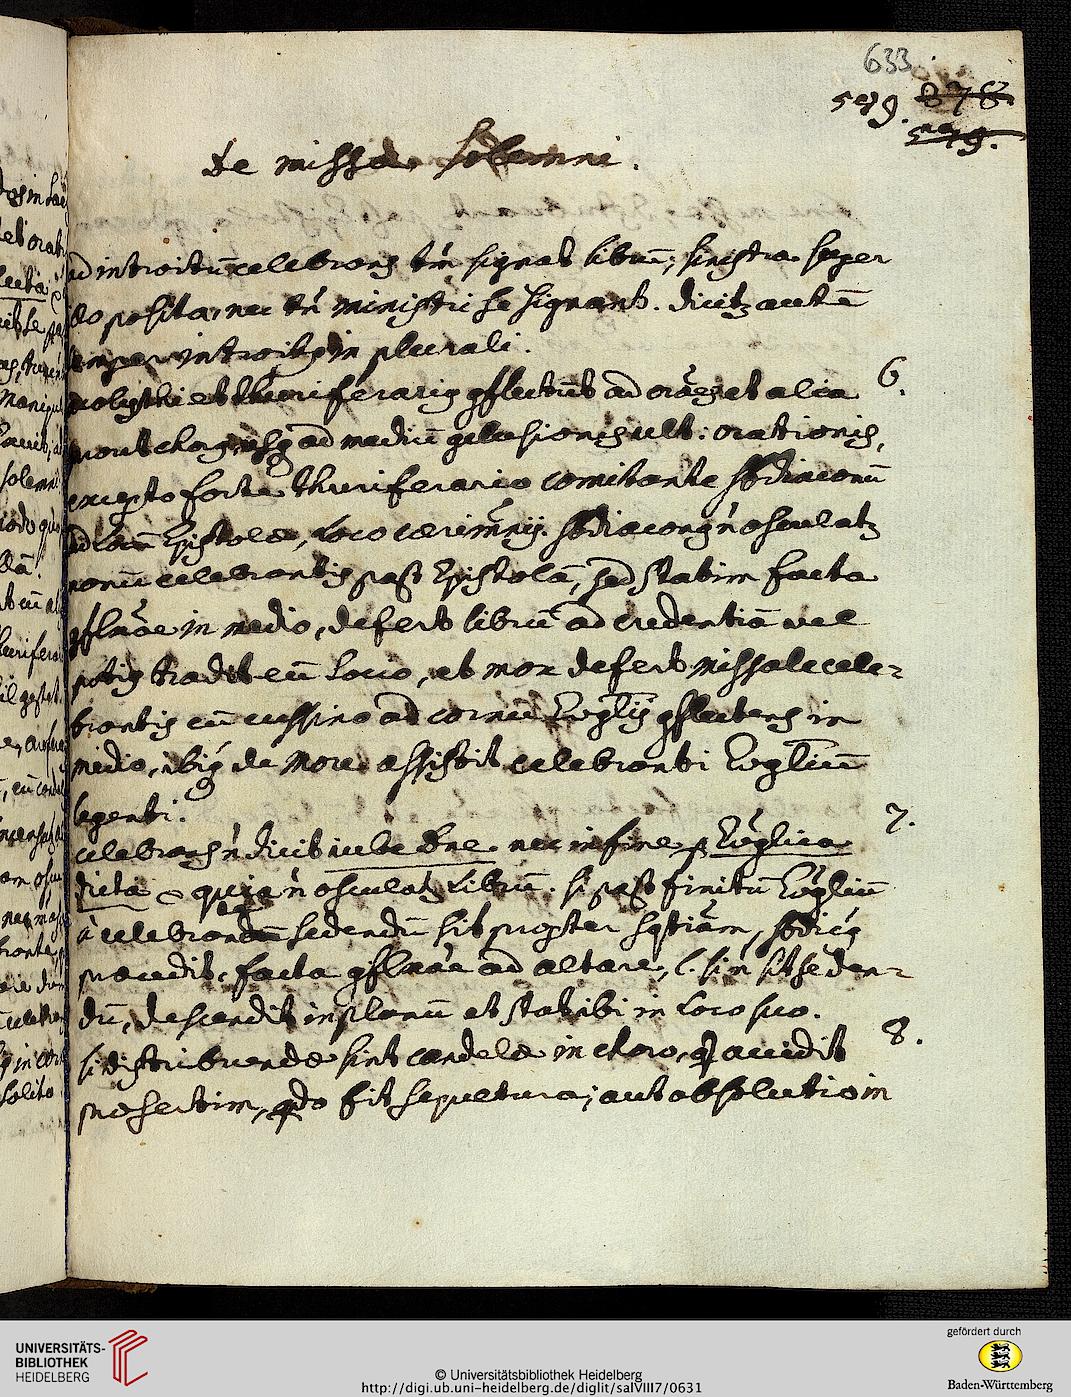 633.
519. 378.
519.
De missa solemni.
ad introitū celebrans tm̄ signat librū; sinistra super
eo posita, nec tn̄ ministri se signant. dicitʒ autē
semper introitꝫ in plurali.
acolythi et thuriferariꝫ gflectūt ad orāes et alia 6.
usqꝫ ad mediū gflexionis ult: orationis,
excepto forte thuriferario comitante sbdiaconū
ad locū Epistolæ, loco cærimn̄ij. sbdiaconꝫ n̄ osculatʒ
manū celebrantis post Epistolā, sed statim facta
gflnāoe in medio, defert librū ad credentiā vel
potiꝫ tradit eū socio, et mox defert missale cele-
brantis cū cussino ad cornu Evglij gflectens in
medio, ibiqꝫ de more assistit celebranti Evgliū
legenti.
celebrans n̄ dicit iube Dne nec in fine p Evglica 7.
dicta & quia n̄ osculatʒ librū. si post finitū Evgliū
à celebrante sedendū sit propter sqtiām, sbdicꝫ
procedit, facta gflnāoe ad altare, l. si n̄ sit seden-
dū, descendit in planū et stat ibi in loco suo.
si distribuendæ sint candelæ in choro, qd accidit 8.
præsertim, qdo fit sepultura, aut absolutio in
UNIVERSITÄTS-
BIBLIOTHEK
HEIDELBERG
© Universitätsbibliothek Heidelberg
http://digi.ub.uni-heidelberg.de/diglit/salVIII7/0631
gefördert durch
Baden-Württemberg